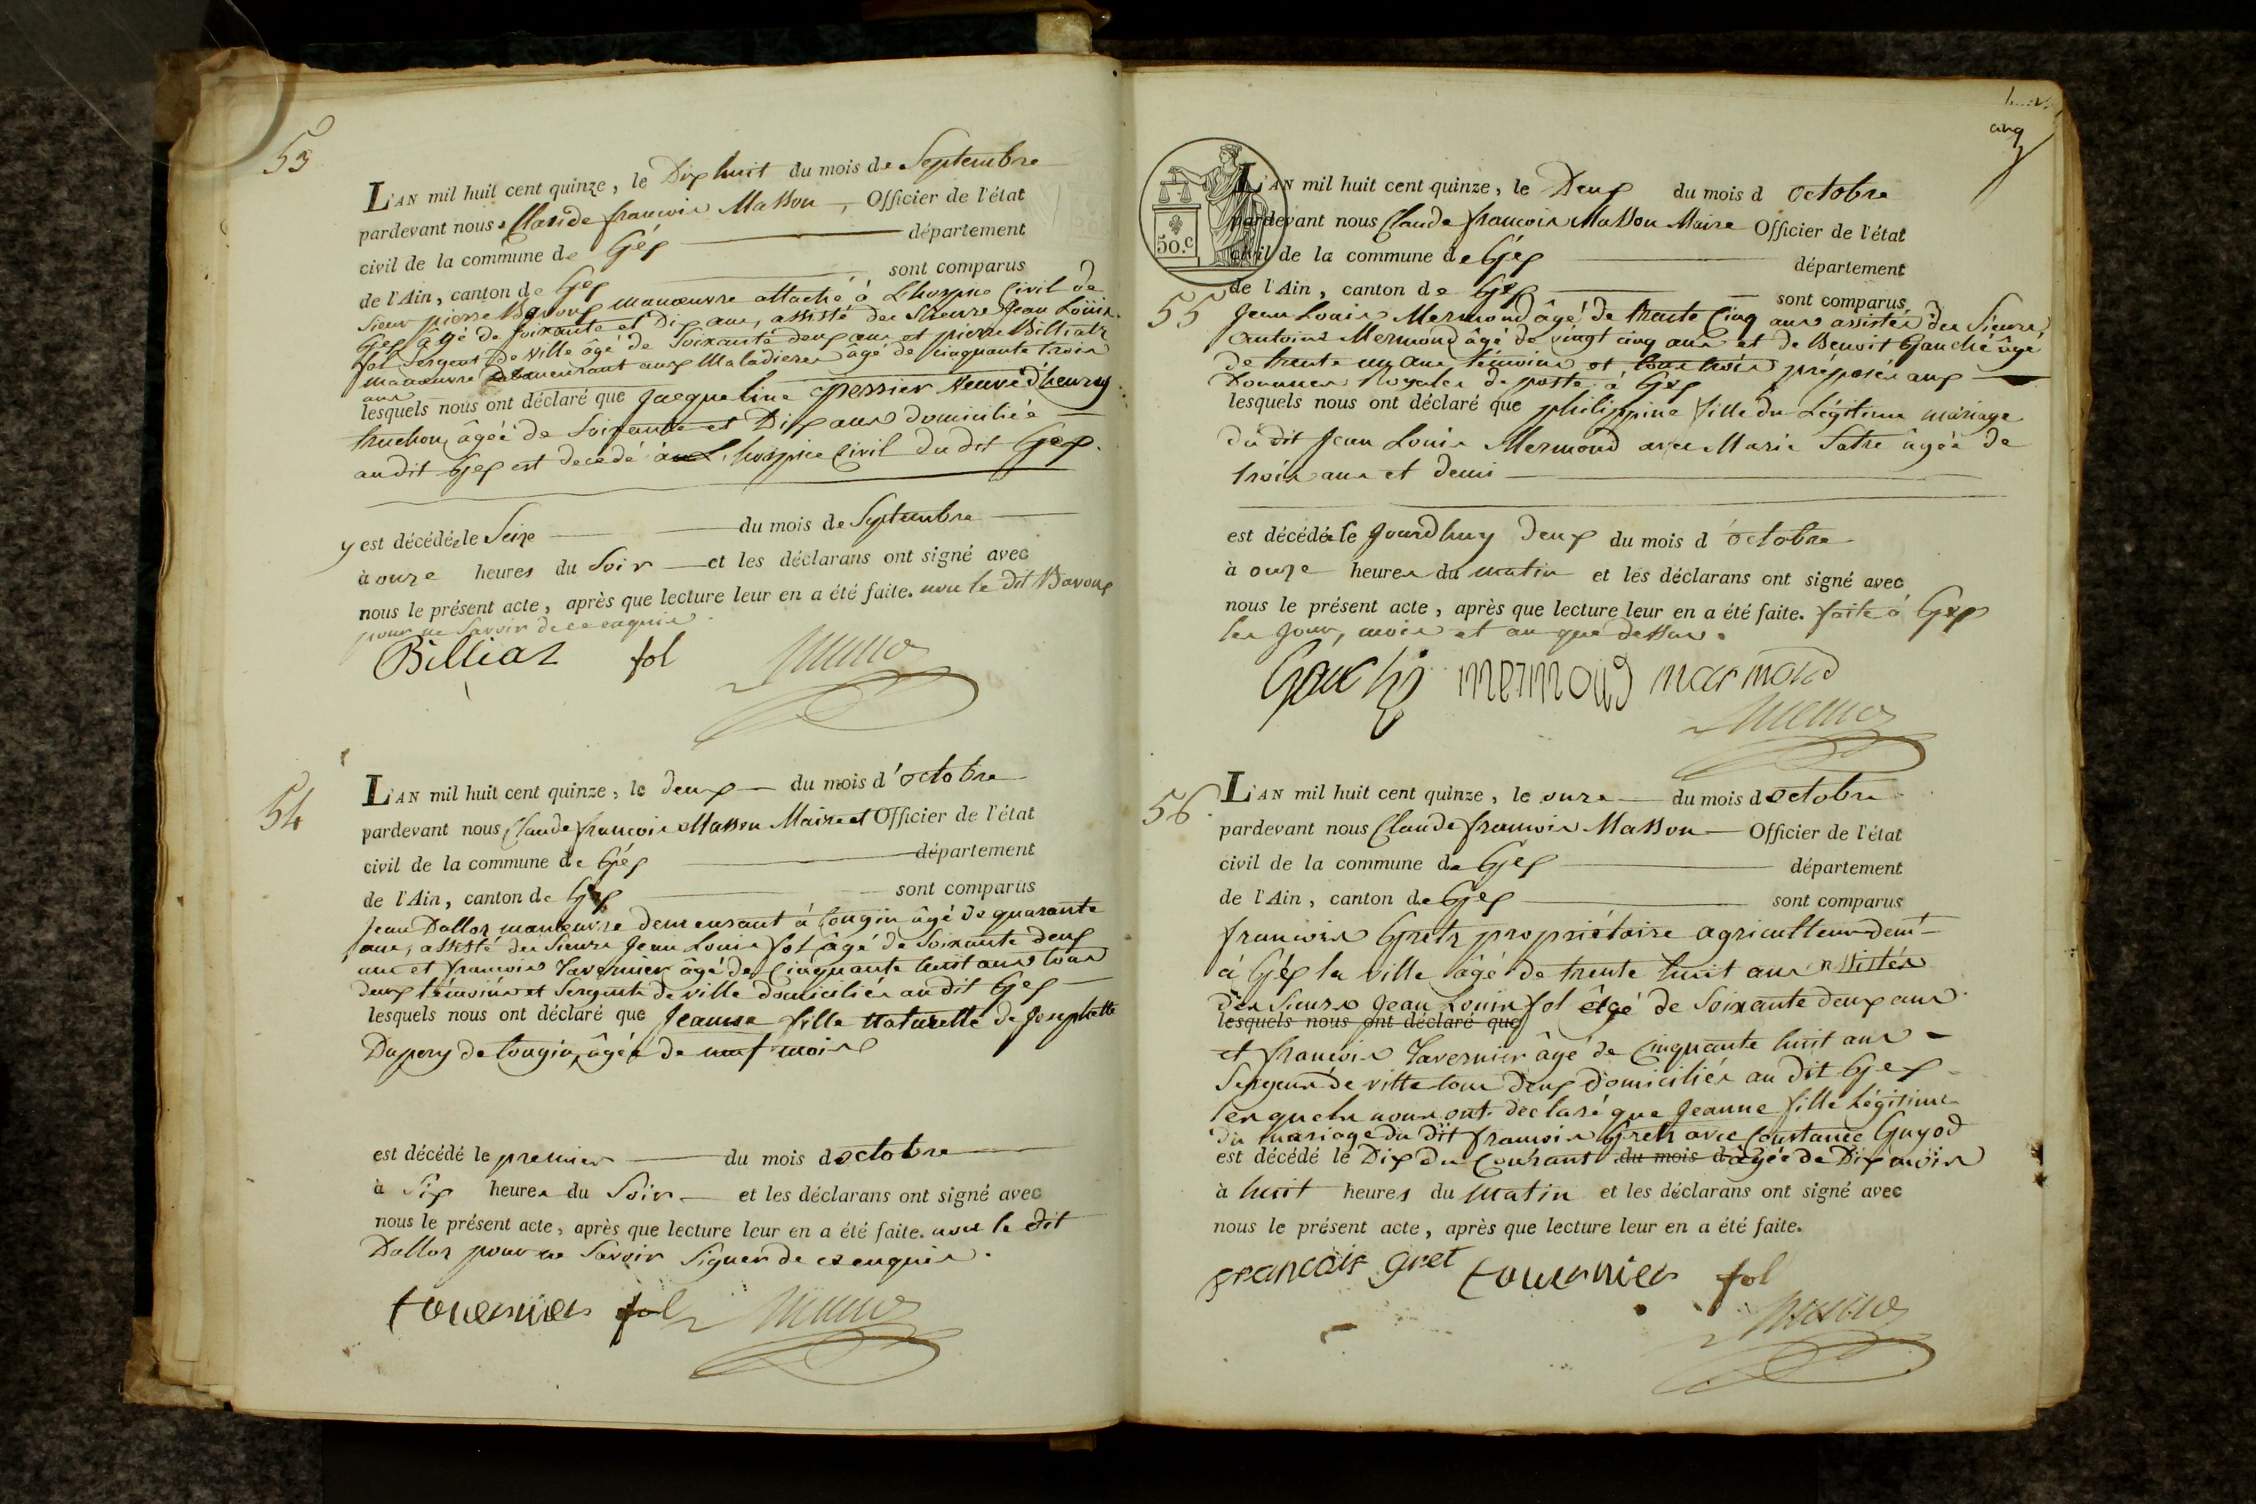 53
L'AN mil huit cent quinze, le Dix huit du mois de Septembre
pardevant nous Claude françois Masson, Officier de l'état
civil de la commune de Géx département
de l'Ain, canton de Gex sont comparus
Sieur pierre Bavoux manœuvre attaché à L'hospice Civil de
Gex âgé de soixante et Dix ans, assisté des Sieurs Jean Louis
fol Sergent de Ville âgé de Soixante deux ans et pierre Billiatz
manœuvre demeurant aux Maladieres âgé de cinquante trois
ans
lesquels nous ont déclaré que Jacqueline Veuve d'henry
truchon, âgéé de Soixante et Dix ans domiciliée
au dit Gex est decedé à L'hospice Civil du dit Gex.
y est décédée le Seize du mois de Septembre
à onze heures du Soir et les déclarans ont signé avec
nous le présent acte, après que lecture leur en a été faite. non le dit Bavoux
pour ne Savoir de ce enquis.
Billiaz fol
54
L'AN mil huit cent quinze, le deux du mois d'octobre
pardevant nous Claude françois Masson Maire et Officier de l'état
civil de la commune de Géx département
de l'Ain, canton de Gex sont comparus
Jean Dalloz manœuvre demeurant à tougin âgé de quarante
ans, assisté des Sieurs Jean Louis fol âgé de Soixante deux
ans et françois Tavernier âgé de Cinquante huit ans tous
deux témoins et Sergents de ville domiciliés au dit Gex
lesquels nous ont déclaré que Jeanne fille Naturelle de Josephette
de tougin, âgée de neuf mois
est décédé le premier du mois d octobre
à Six heures du Soir et les déclarans ont signé avec
nous le présent acte, après que lecture leur en a été faite. non le dit
Dalloz pour ne Savoir Signer de ce enquis.
tavernier fol
cinq
50.c
L'AN mil huit cent quinze, le Deux du mois d octobre
pardevant nous Claude françois Masson Maire Officier de l'état
civil de la commune de Géx département
de l'Ain, canton de Gex sont comparus
55 Jean Louis Mermond âgé de trente Cinq ans assistés des Sieurs
Antoine Mermond âgé de vingt cinq ans et de Benoit Gauché âgé
de trente un ans témoins et tous trois préposés aux
Douanes Royales de poste à Gex
lesquels nous ont déclaré que philippine fille du Légitime mariage
du dit Jean Louis Mermond avec Marie Satre âgée de
trois ans et demi
est décédée le Jourdhuy deux du mois d octobre
à onze heures du matin et les déclarans ont signé avec
nous le présent acte, après que lecture leur en a été faite. faite à Gex
les Jour, mois et an que dessus.
Gauché mermond marmond
56
L'AN mil huit cent quinze, le onze du mois d octobre
pardevant nous Claude françois Masson Officier de l'état
civil de la commune de Gex département
de l'Ain, canton de Gex sont comparus
françois Gretz propriétaire agriculteur demt
à Géx la ville âgé de trente huit ans assistés
des Sieurs Jean Louis fol âgé de Soixante deux ans
lesquels nous ont déclaré que
et françois Tavernier âgé de Cinquante huit ans
Sergens de ville tous deux domiciliés au dit Gex
lesquels nous ont declaré que Jeanne fille Légitime
du mariage du dit françois Gretz avec Constance Guyod
est décédé le Dix du Courant du mois d âgée de Dix mois
à huit heures du Matin et les déclarans ont signé avec
nous le présent acte, après que lecture leur en a été faite.
francois gret tavernier fol